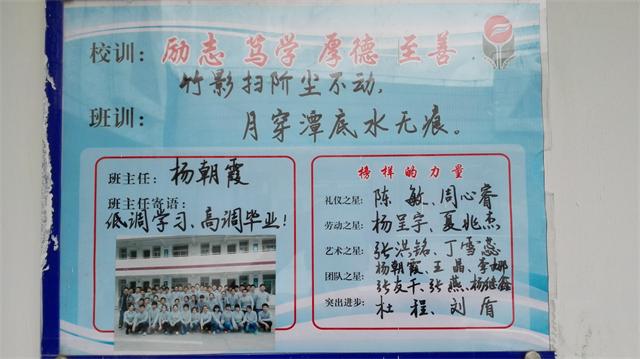 校训：励志 笃学 厚德 至善
竹影扫阶尘不动，
班训：月穿潭底水无痕。
班主任：杨朝霞
班主任寄语：
低调学习、高调毕业！
榜样的力量
礼仪之星：陈敏、周心睿
劳动之星：杨呈宇、夏兆杰
艺术之星：张洪铭、丁雪蕊
团队之星：杨朝霞、王晶、李娜
张友千、张燕、杨继鑫
突出进步：杜程、刘盾